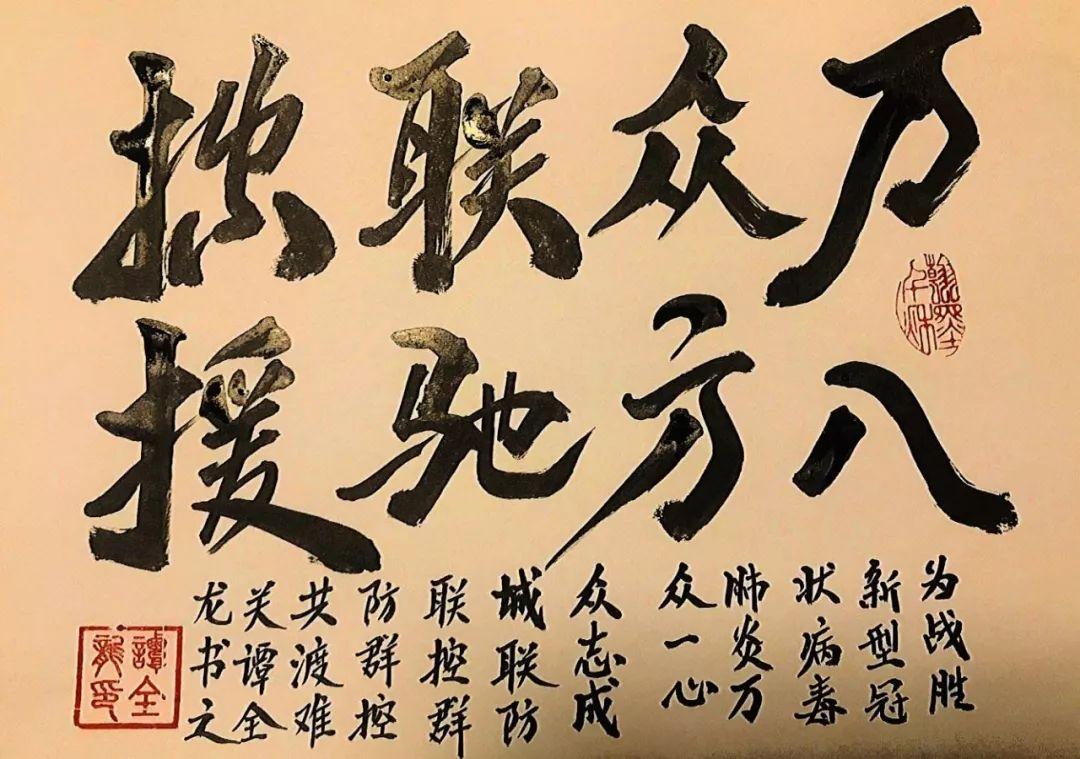 万众联控
八方驰援
翰墨
千秋
为战胜
新型冠
状病毒
肺炎万
众一心
众志成
城联防
联控群
防群控
共渡难
关谭全
龙书之
譚全
龍印